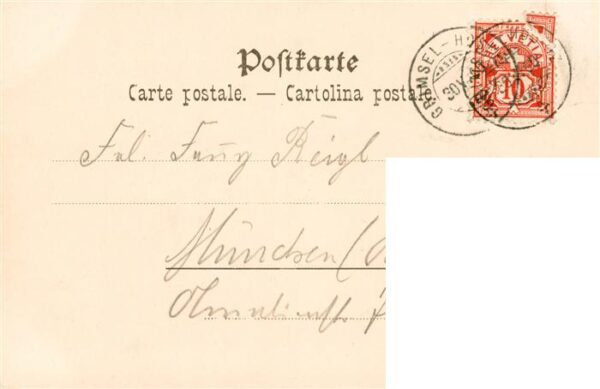 Postkarte
Carte postale. — Cartolina postale
GRIMSEL-HOS
HELVETIA
10
Frl. Fanny Reigl
München (
Amalienstr. 7